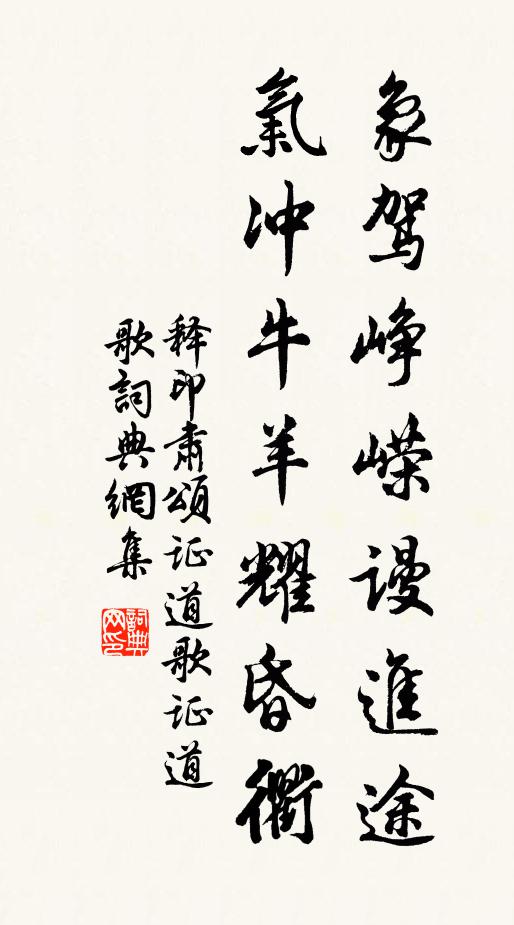 象駕峥嵘謾進途
氣冲牛羊耀昏衢
释印肃頌证道歌证道
歌詞典網集
詞典网印